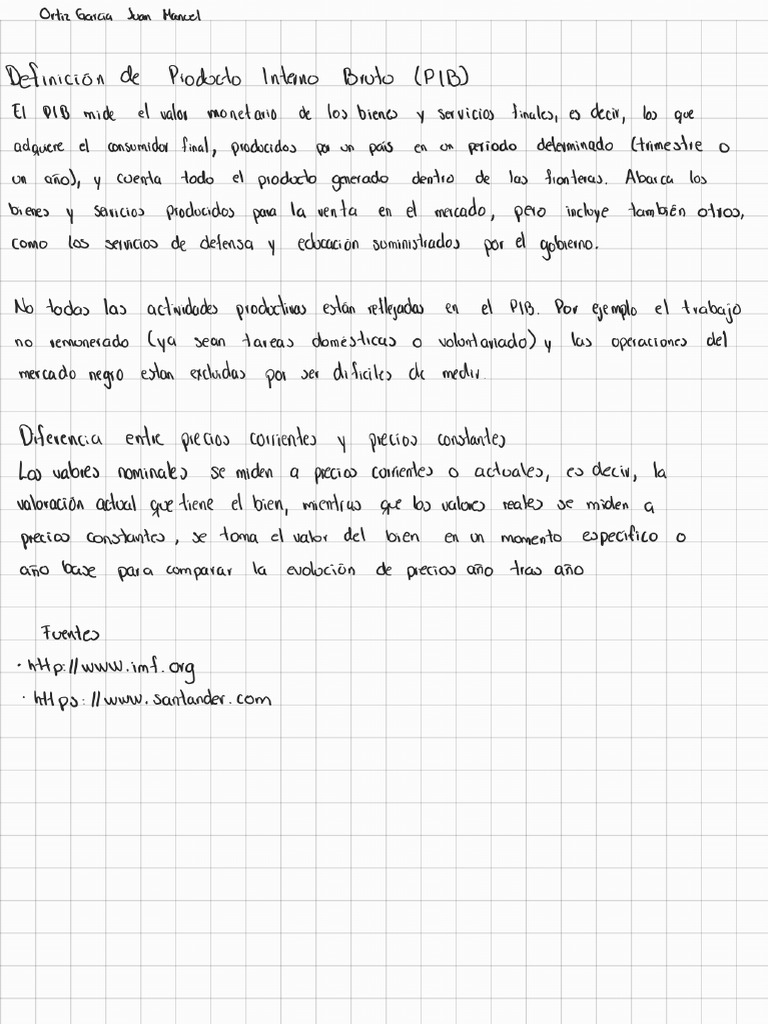 Ortiz Garcia Juan Manuel
Definición de Producto Interno Bruto (PIB)
El PIB mide el valor monetario de los bienes y servicios finales, es decir, los que
adquiere el consumidor final, producidos por un país en un periodo determinado (trimestre o
un año), y cuenta todo el producto generado dentro de las fronteras. Abarca los
bienes y servicios producidos para la venta en el mercado, pero incluye también otros,
como los servicios de defensa y educación suministrados por el gobierno.
No todas las actividades productivas están reflejadas en el PIB. Por ejemplo el trabajo
no remunerado (ya sean tareas domésticas o voluntariado) y las operaciones del
mercado negro estan excluidas por ser dificiles de medir.
Diferencia entre precios corrientes y precios constantes
Los valores nominales se miden a precios corrientes o actuales, es decir, la
valoración actual que tiene el bien, mientras que los valores reales se miden a
precios constantes, se toma el valor del bien en un momento especifico o
año base para comparar la evolución de precios año tras año
Fuentes
· http://www.imf.org
· https://www.santander.com